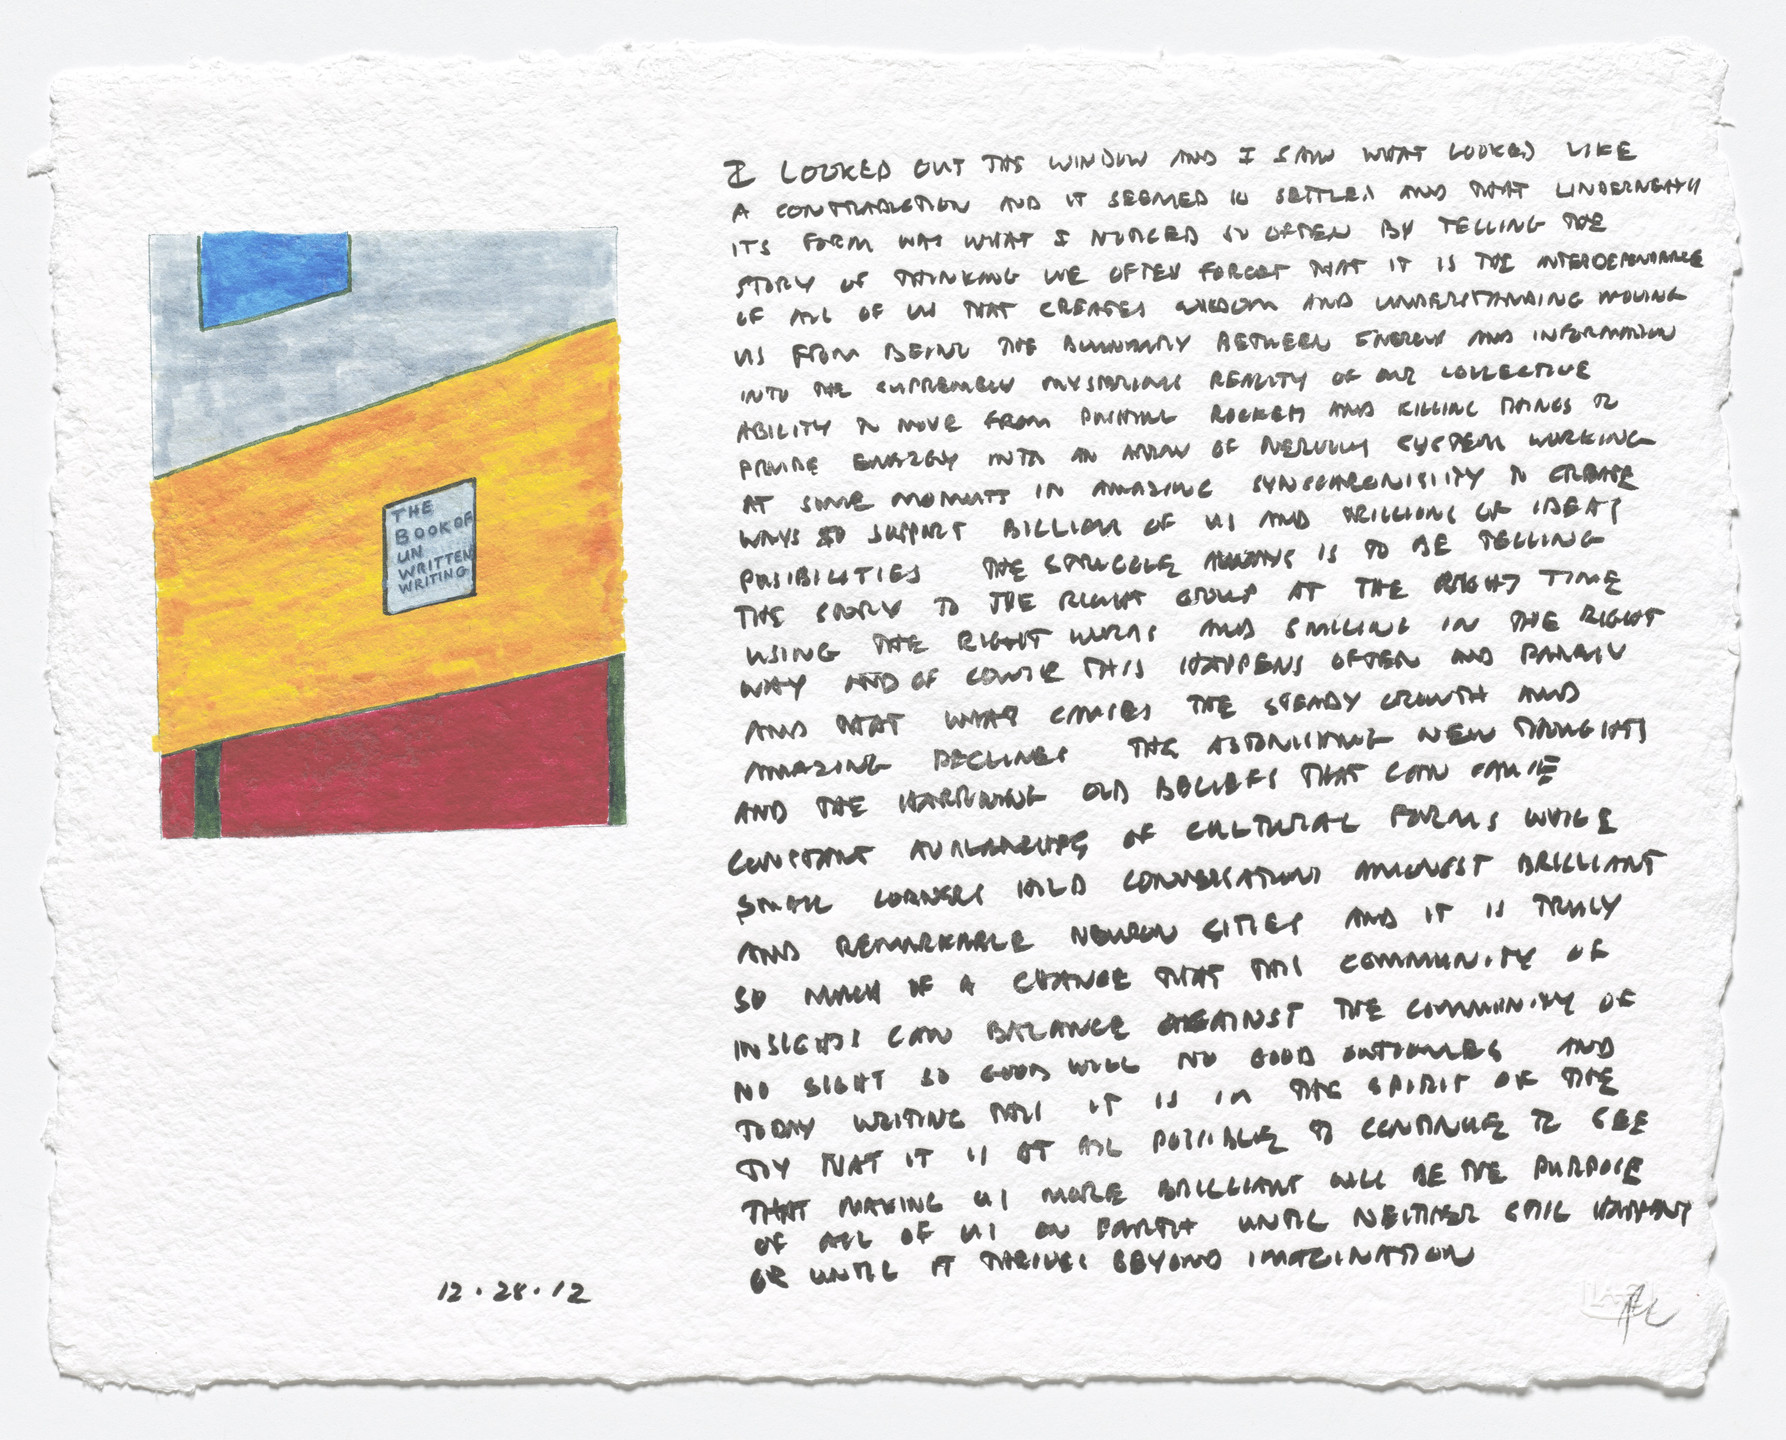 THE
BOOK OF
UN
WRITTEN
WRITING
I LOOKED OUT THE WINDOW AND I SAW WHAT LOOKED LIKE
A CONTRADICTION AND IT SEEMED SO SETTLED AND THAT UNDERNEATH
ITS FORM WAS WHAT I NOTICED SO OFTEN BY TELLING THE
STORY OF THINKING WE OFTEN FORGET THAT IT IS THE INTERDEPENDENCE
OF ALL OF US THAT CREATES WISDOM AND UNDERSTANDING MOVING
US FROM BEING THE BOUNDARY BETWEEN ENERGY AND INFORMATION
INTO THE SUPREMELY MYSTERIOUS REALITY OF OUR COLLECTIVE
ABILITY TO MOVE FROM POINTING ROCKETS AND KILLING THINGS TO
PROVIDE ENERGY INTO AN ARRAY OF NERVOUS SYSTEM WORKING
AT SOME MOMENTS IN AMAZING SYNCHRONISITY TO CREATE
WAYS TO SUPPORT BILLIONS OF US AND TRILLIONS OF IDEAS
POSIBILITIES THE STRUGGLE ALWAYS IS TO BE TELLING
THE STORY TO THE RIGHT GROUP AT THE RIGHT TIME
USING THE RIGHT WORDS AND SMILING IN THE RIGHT
WAY AND OF COURSE THIS HAPPENS OFTEN AND RARELY
AND THAT WHAT CAUSES THE STEADY GROWTH AND
AMAZING DECLINES THE ASTONISHING NEW THOUGHTS
AND THE HARDENING OLD BELIEFS THAT CAN CAUSE
CONSTANT AVALANCHES OF CULTURAL FORMS WHILE
SMALL CORNERS HOLD CONVERSATIONS AMONGST BRILLIANT
AND REMARKABLE NEURON CITIES AND IT IS TRULY
SO MUCH OF A CHANCE THAT THIS COMMUNITY OF
INSIGHTS CAN BALANCE AGAINST THE COMMUNITY OF
NO SIGHT SO GOOD WILL NO GOOD OUTCOMES AND
TODAY WRITING THIS IT IS IN THE SPIRIT OF THE
JOY THAT IT IS AT ALL POSSIBLE TO CONTINUE TO SEE
THAT MAKING US MORE BRILLIANT WILL BE THE PURPOSE
OF ALL OF US ON EARTH UNTIL NEITHER STILL
OR UNTIL IT THRIVES BEYOND IMAGINATION
12.28.12